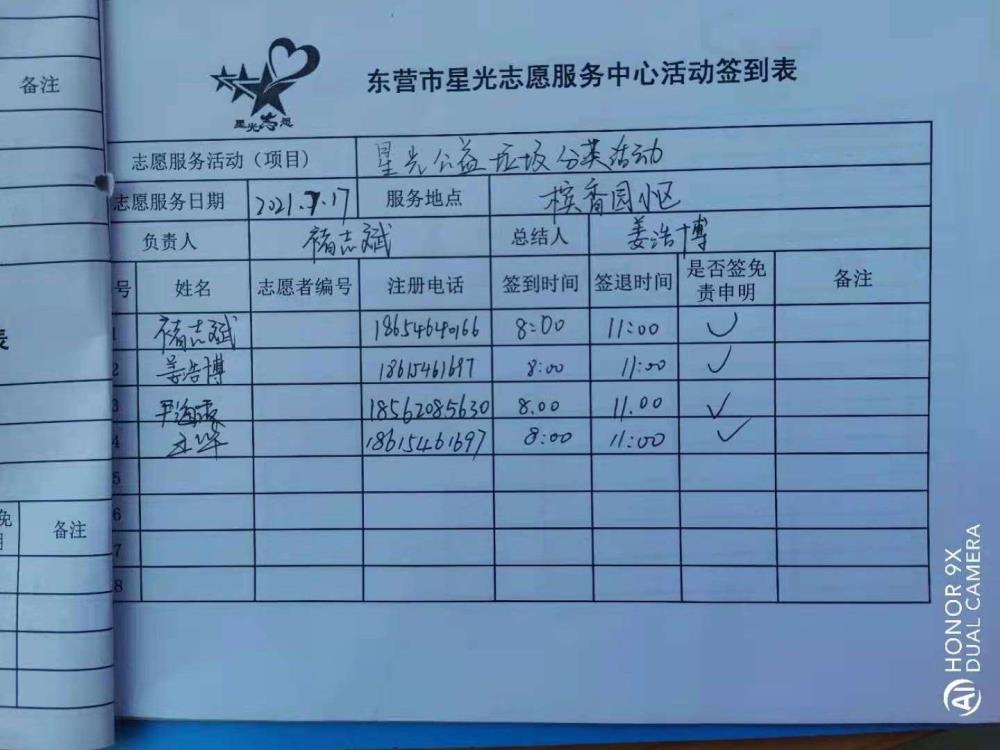 备注
星光志愿
东营市星光志愿服务中心活动签到表
志愿服务活动（项目） 星光公益垃圾分类活动
志愿服务日期 2021.7.17 服务地点 槟香园小区
负责人 褚志斌 总结人 姜浩博
号 姓名 志愿者编号 注册电话 签到时间 签退时间 是否签免责申明 备注
1 褚志斌 18654640166 8:00 11:00 ✓
2 姜浩博 18615461697 8:00 11:00 ✓
3 尹海 18562085630 8.00 11.00 ✓
4 18615461697 8:00 11:00 ✓
5
6
7
8
免 备注
HONOR 9X
AI DUAL CAMERA